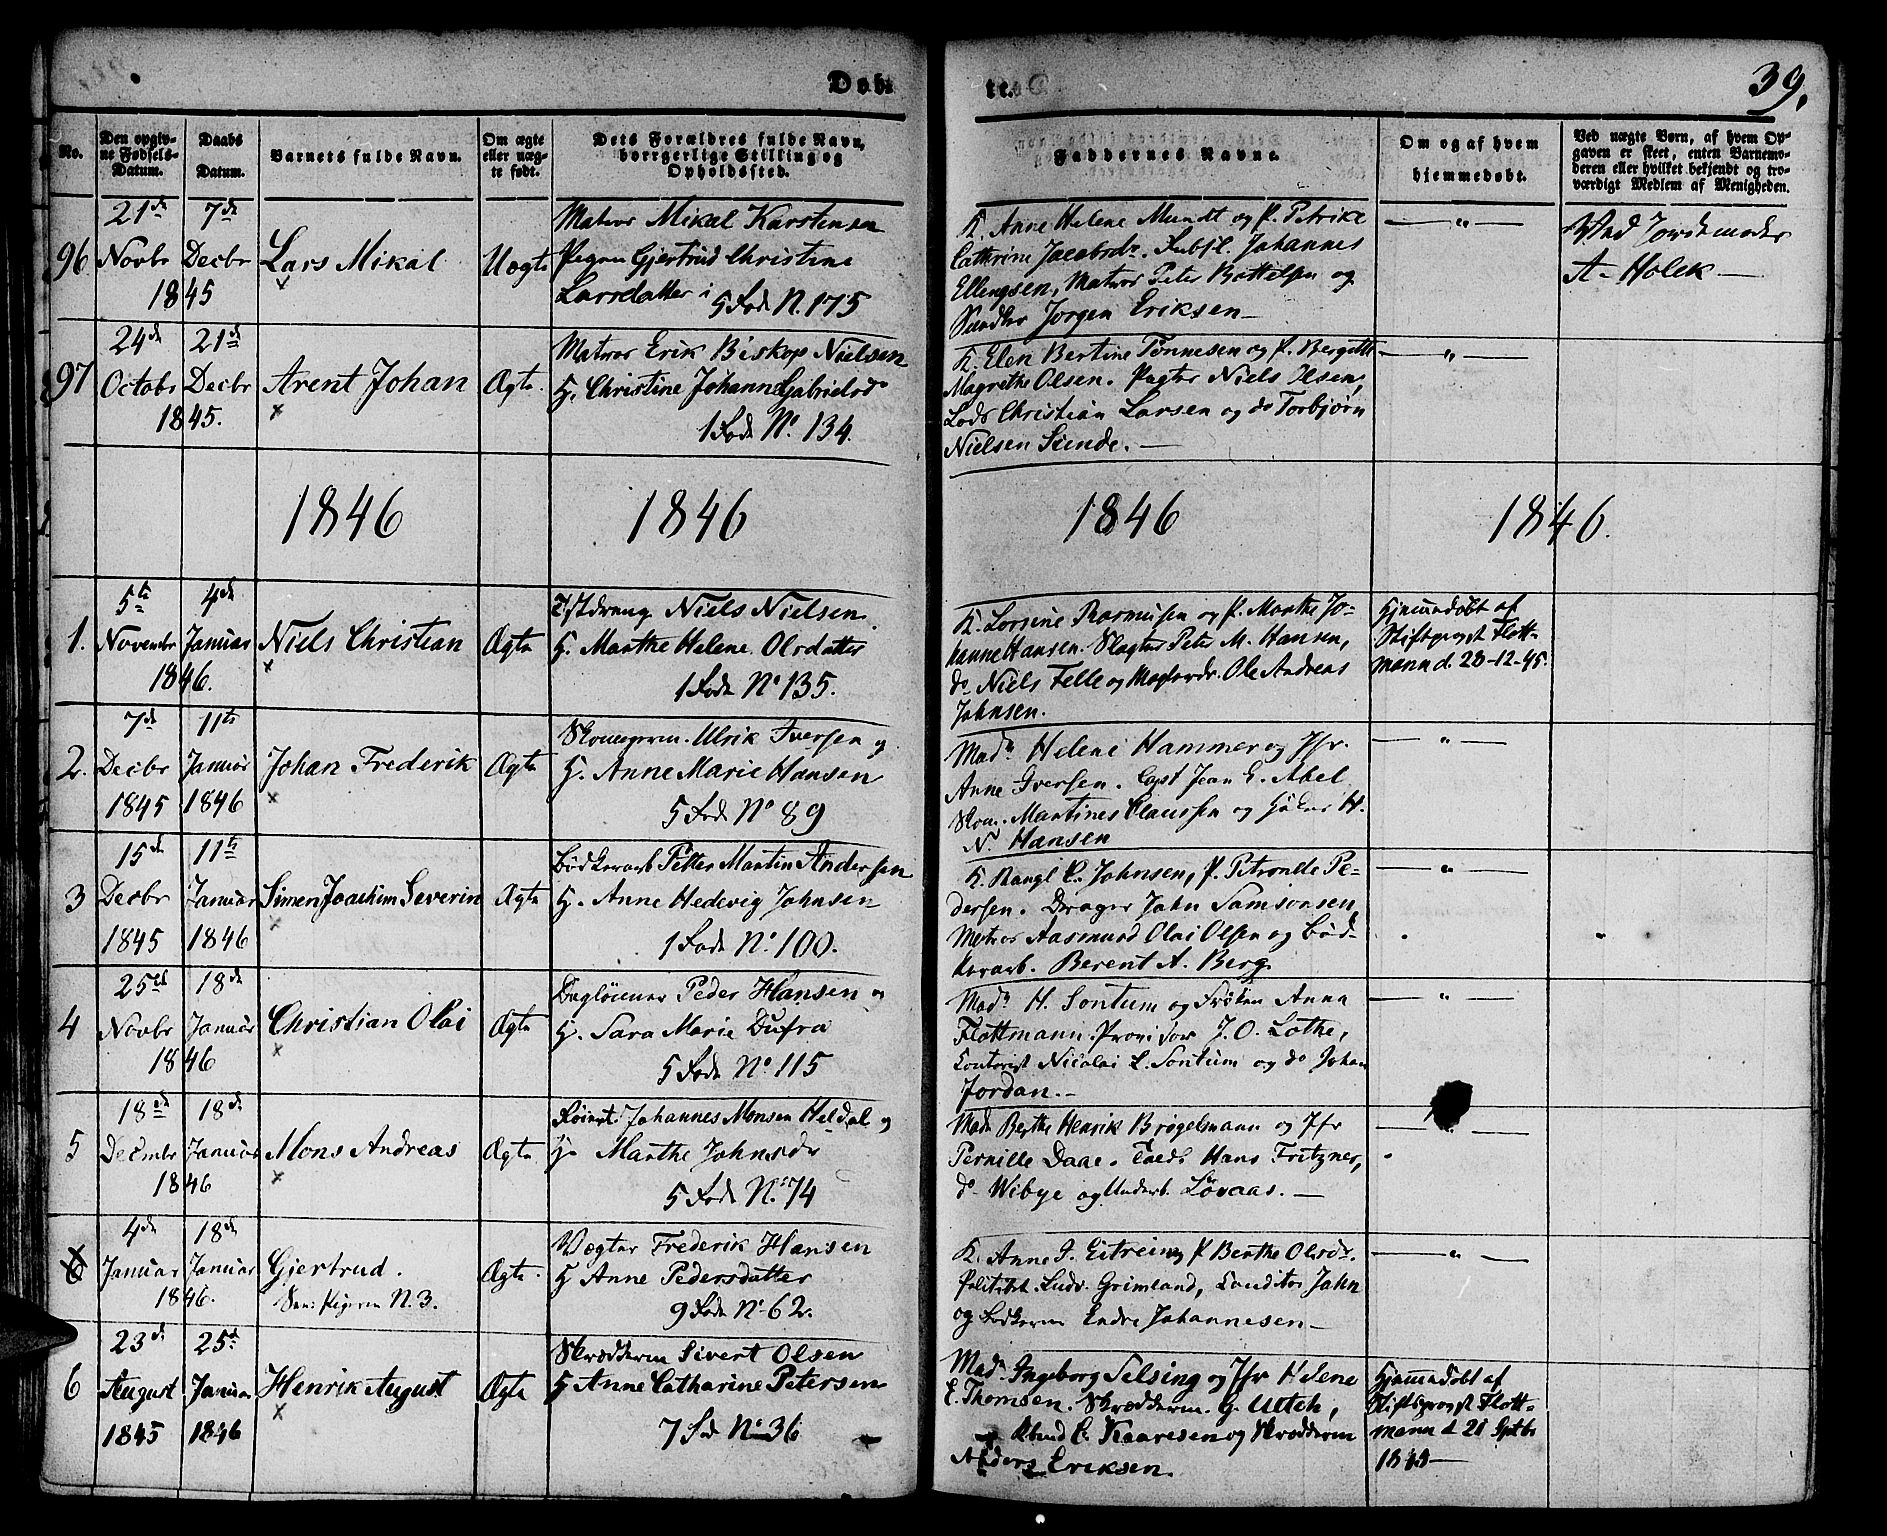 Døbte.
39.
No.
Den opgivne Fødsels-Datum.
Daabs Datum.
Barnets fulde Navn.
Om ægte eller uægte født.
Dets Forældres fulde Navn, borrgerlige Stilling og Opholdssted.
Faddernes Navne.
Om og af hvem hjemmedøbt.
Ved uægte Børn, af hvem Opgaven er skeet, enten Barnemoderen eller hvilket bekjendt og troværdigt Medlem af Menigheden.
96
21de Novbr
7de Decbr
1845
Lars Mikal
Uægte
Matros Mikal Karstensen
Pigen Gjertrud Christine
Larsdatter i 5 Fode N. 175
K. Anne Helene Mundt og P. Petrike
Cathrine Jacobsdr. Johannes
Ellengsen, Matros Peter Bottelsen og
Jørgen Eriksen —
— " —
Ved Jordemoder
A. Holck —
97
24de Octobr
21de Decbr
1845.
Arent Johan
Ægte.
Matros Erik Biskop Nielsen
H. Christine Johanne Gabrielsdr
1 Fode No. 134.
K. Elen Bertine Tønnesen og P. Bergitte
Magrethe Olsen. Niels Ilsen,
Lods Christian Larsen og do Torbjørn
Nielsen Sunde. —
— " —
1846
1846
1846
1846.
1.
5te Novembr
4de Januar
1846.
Niels Christian
Ægte
Niels Nielsen
H. Marthe Helene Olsdatter
1 Fode No 135.
K. Lorsine Rasmussen og P. Marthe Jo-
hanne Hansen. Slagter Peter M. Hansen,
do Niels Felle og Ole Andreas
Johnsen.
Hjemmedøbt af
Stiftsprovst Flott-
mann d. 28-12-45.
2.
7de Decbr 1845
11te Januar 1846
Johan Frederik
Ægte
Skomagerm. Ulrik Iversen og
H. Anne Marie Hansen
5 Fode No 89
Mad. Helene Hammer og Jfr.
Anne Iversen. Capt Jean E. Abel
Skom. Martines Claussen og H.
N. Hansen
— " —
3
15de Decbr 1845
11te Januar 1846
Simen Joachim Severin
Ægte
Bødkerarb Petter Martin Andersen
H. Anne Hedevig Johnsen
1 Fode No. 100.
K. Rangl C. Johnsen, P. Petronelle Pe-
dersen. Drager John Samsonsen
Matros Aasmund Olai Olsen og Bød-
kerarb. Berent A. Berg
— " —
4
25de Novbr
18de Januar
1846
Christian Olai
Ægte
Dagleiener Peder Hansen og
H. Sara Marie Dufra
5 Fode No. 115
Mad. H. Sontum og Frøken Anna
Flottmann. Provisor J. O. Lothe,
Contorist Nicolai C. Sontum og do Johan
Jordan. —
— " —
5
18de Decmbr
18de Januar
1846
Mons Andreas
Ægte
Johannes Monsen Heldal og
H. Marthe Johnsdr
5 Fode No. 74
Mad. Berthe Henrik Brøgelmann og Jfr
Pernille Daae. Hans Fritzner,
do Wibye og Underb. Løvaas. —
— " —
6
4de Januar
18de Januar
1846.
Gjertrud.
N. 3.
Ægte.
Vægter Frederik Hansen
H Anne Pedersdatter
9 Fode No. 62.
K. Anne J. Eitrein og P Berthe Olsdr.
Politibet. Ludv. Grimland, Conditor John
og Endre Johannesen —
— " —
6
23de August 1845
25de Januar 1846
Henrik August
Ægte
Skrædderm Sivert Olsen
H Anne Catharine Petersen
7 Fode No. 36
Mad. Ingeborg Selsing og Jfr Helene
E. Thomsen. Skrædderm. G. Ultch,
Knud C. Kaaresen og Skrædderm
Anders Eriksen.
Hjemmedøbt af
Stiftsprovst Flott-
mann d 21 Septbr
1845 —